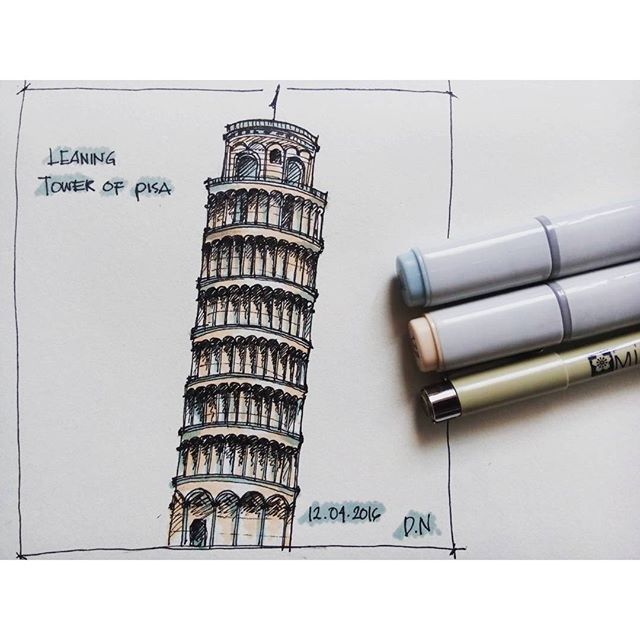 LEANING
TOWER OF PISA
12.04.2016
D.N
Mi